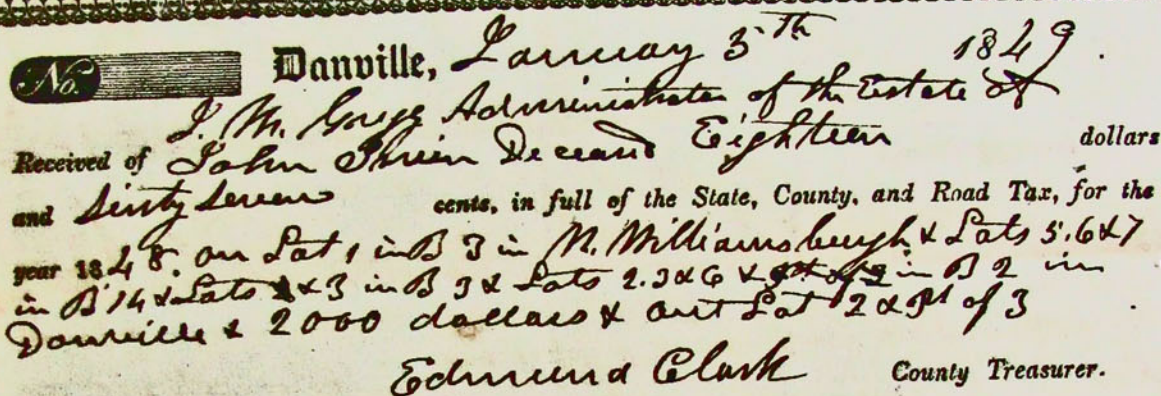 No. Danville, January 5th 1849.
J. M. Gregg Administrator of the Estate of
Received of John Deceasd Eighteen dollars
and Sixty Seven cents, in full of the State, County, and Road Tax, for the
year 1848. on Lot 1 in B 3 in N. Williamsburgh & Lots 5.6&7
in B 14 & Lots & 3 in B 3 & Lots 2.3&6 & in B 2 in
Danville & 2000 dollars & out Lot 2 & Pt of 3
Edmund Clark County Treasurer.